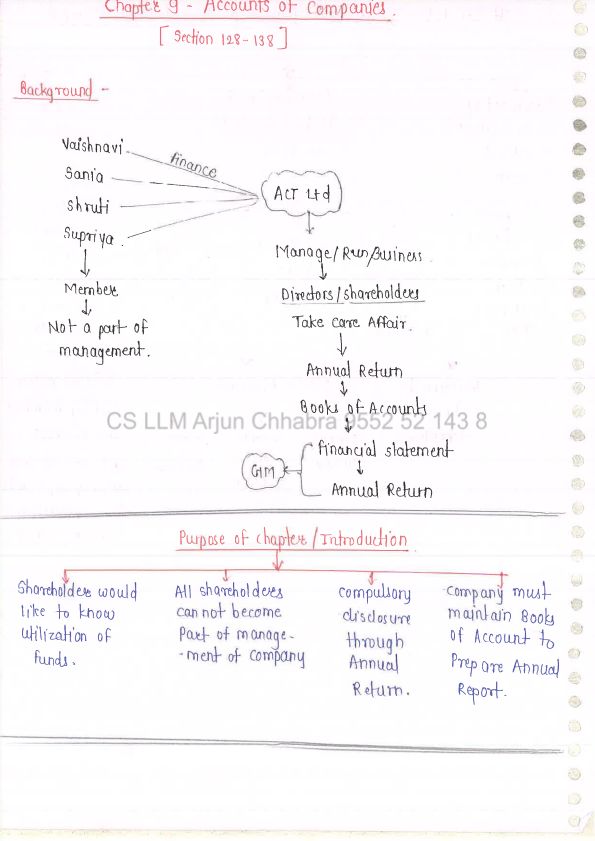 Chapter 9 - Accounts of Companies.
[Section 128-138]
Background -
Vaishnavi
Sania
Shruti
Supriya
finance
ACT Ltd
Member
Not a part of
management.
Manage/Run/Business
Directors/shareholders
Take care Affair.
Annual Return
Books of Accounts
CS LLM Arjun Chhabra 9552 52 143 8
financial statement
GM
Annual Return
Purpose of chapter/Introduction
Shareholders would
like to know
utilization of
funds.
All shareholders
cannot become
Part of manage-
-ment of company
compulsory
disclosure
through
Annual
Return.
Company must
maintain Books
of Account to
Prepare Annual
Report.